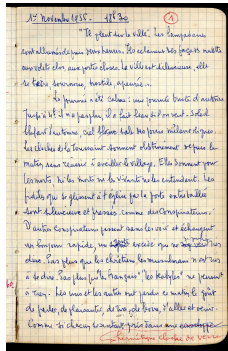 1er Novembre 1955 - 18h30
1
"Il pleut sur la ville". Les lampadaires
sont allumés depuis
aux volets clos, aux portes closes. La ville est silencieuse, elle
se terre, hostile, apeurée...
La journée a été calme : une journée d'automne
jusqu'à il n'a pas plu, il a fait beau si l'on veut. Soleil
blafard d'automne, ciel
Les cloches de la Toussaint sonnent obstinément depuis le
matin sans réussir à éveiller le village. Elles sonnent pour
les morts, ni les morts ni les vivants ne les entendent. Les
fidèles qui se glissent à l'église par la porte entrebaillée
sont silencieux et pressés comme des conspirateurs.
D'autres conspirateurs passent sans les voir et échangent
un bonjour rapide, un
dire. Pas plus que les chrétiens les musulmans n'ont rien
à se dire. Pas plus que les Français "les Kabyles" ne pensent
à rien. Les uns et les autres ont perdu ce matin le goût
de parler, de plaisanter, de rire, de boire, d'aller et venir.
Comme si chacun pris dans une
cloche de verre